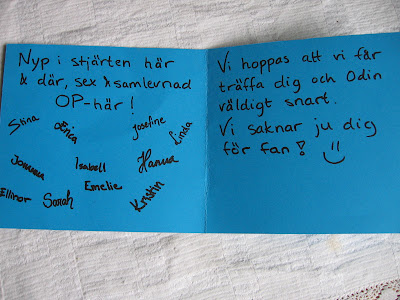 Nyp i stjärten här
& där, sex & samlevnad
OP-här!
Stina
Erica
Josefine
Linda
Johanna
Isabell
Hanna
Ellinor
Sarah
Emelie
Kristin
Vi hoppas att vi får
träffa dig och Odin
väldigt snart.
Vi saknar ju dig
för fan! :)